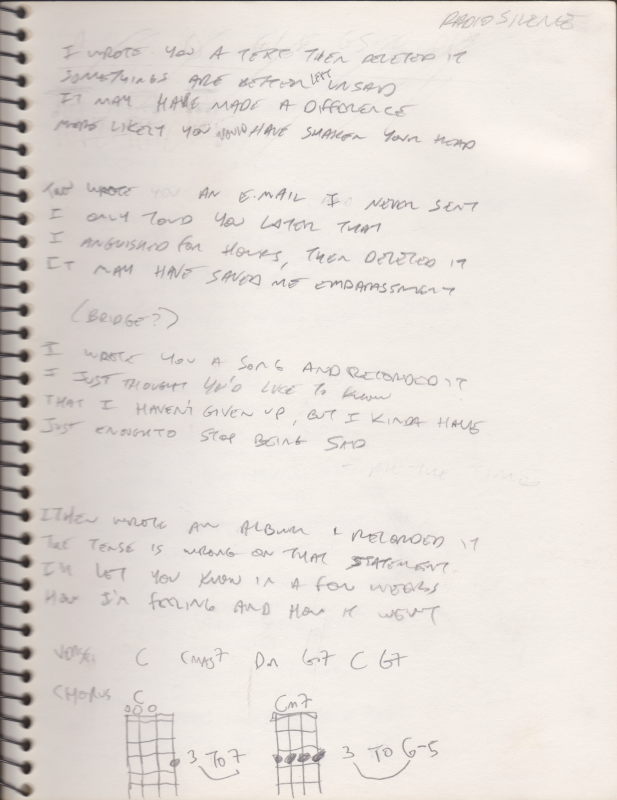 RADIO SILENCE
I WROTE YOU A TEXT THEN DELETED IT
SOMETHINGS ARE BETTER LEFT UNSAID
IT MAY HAVE MADE A DIFFERENCE
MORE LIKELY YOU WOULD HAVE SHAKEN YOUR HEAD
WROTE AN E-MAIL I NEVER SENT
I ONLY TOLD YOU LATER THAT
I ANGUISHED FOR HOURS, THEN DELETED IT
IT MAY HAVE SAVED ME EMBARASSMENT
(BRIDGE?)
I WROTE YOU A SONG AND RECORDED IT
I JUST THOUGHT YOU'D LIKE TO KNOW
THAT I HAVEN'T GIVEN UP, BUT I KINDA HAVE
JUST ENOUGH TO STOP BEING SAD
I THEN WROTE AN ALBUM & RECORDED IT
THE TENSE IS WRONG ON THAT STATEMENT
I'LL LET YOU KNOW IN A FEW WEEKS
HOW I'M FEELING AND HOW IT WENT
VERSE: C CMAJ7 Dm G7 C G7
CHORUS C Cm7
3 TO 7 3 TO 6-5